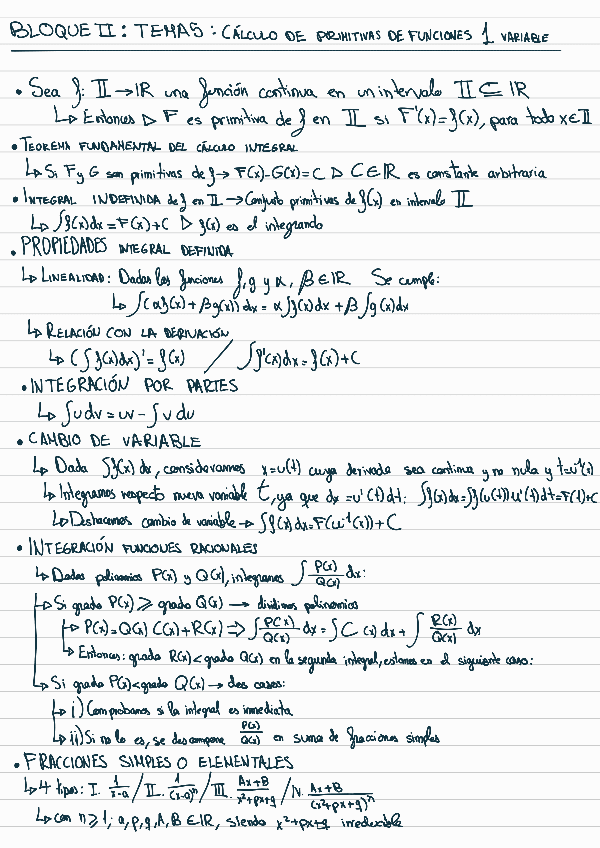 BLOQUE II: TEMA5: CÁLCULO DE PRIMITIVAS DE FUNCIONES 1 VARIABLE
• Sea f: II → IR una función continua en un intervalo II ⊆ IR
↳ Entonces ▷ F es primitiva de f en II si F'(x)=f(x), para todo x∈II
• TEOREMA FUNDAMENTAL DEL CÁLCULO INTEGRAL
↳ Si F y G son primitivas de f → F(x)-G(x)=C ▷ C∈IR es constante arbitraria
• INTEGRAL INDEFINIDA de f en II → Conjunto primitivas de f(x) en intervalo II
↳ ∫f(x)dx = F(x)+C ▷ f(x) es el integrando
• PROPIEDADES INTEGRAL DEFINIDA
↳ LINEALIDAD: Dadas las funciones f,g y α, β∈IR Se cumple:
↳ ∫(αf(x)+βg(x))dx = α∫f(x)dx + β∫g(x)dx
↳ RELACIÓN CON LA DERIVACIÓN
↳ (∫f(x)dx)' = f(x) / ∫f'(x)dx = f(x)+C
• INTEGRACIÓN POR PARTES
↳ ∫udv = uv - ∫vdu
• CAMBIO DE VARIABLE
↳ Dada ∫f(x)dx, consideramos x=u(t) cuya derivada sea continua y no nula y t=u⁻¹(x)
↳ Integramos respecto nueva variable t, ya que dx = u'(t)dt: ∫f(x)dx=∫f(u(t))u'(t)dt=F(t)+C
↳ Deshacemos cambio de variable → ∫f(x)dx = F(u⁻¹(x))+C
• INTEGRACIÓN FUNCIONES RACIONALES
↳ Dados polinomios P(x) y Q(x), integramos ∫P(x)/Q(x) dx:
↳ Si grado P(x) ⩾ grado Q(x) → dividimos polinomios
↳ P(x)=Q(x) C(x)+R(x) ⇒ ∫P(x)/Q(x) dx = ∫C(x)dx + ∫R(x)/Q(x) dx
↳ Entonces: grado R(x)<grado Q(x) en la segunda integral, estamos en el siguiente caso:
↳ Si grado P(x)<grado Q(x) → dos casos:
↳ i) Comprobamos si la integral es inmediata
↳ ii) Si no lo es, se descompone P(x)/Q(x) en suma de fracciones simples
• FRACCIONES SIMPLES O ELEMENTALES
↳ 4 tipos: I. 1/x-a / II. 1/(x-a)ⁿ / III. Ax+B/x²+px+q / IV. Ax+B/(x²+px+q)ⁿ
↳ con n⩾1; a,p,q,A,B∈IR, siendo x²+px+q irreducible